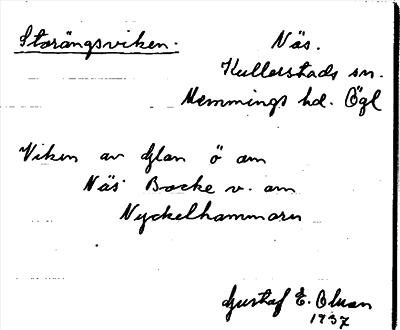 Storängsviken.
Näs.
Kullerstads sn.
Memmings hd. Ögl
Viken av Glan ö om
Näs Backe v. om
Nyckelhammarn
Gustaf E. Olson
1937